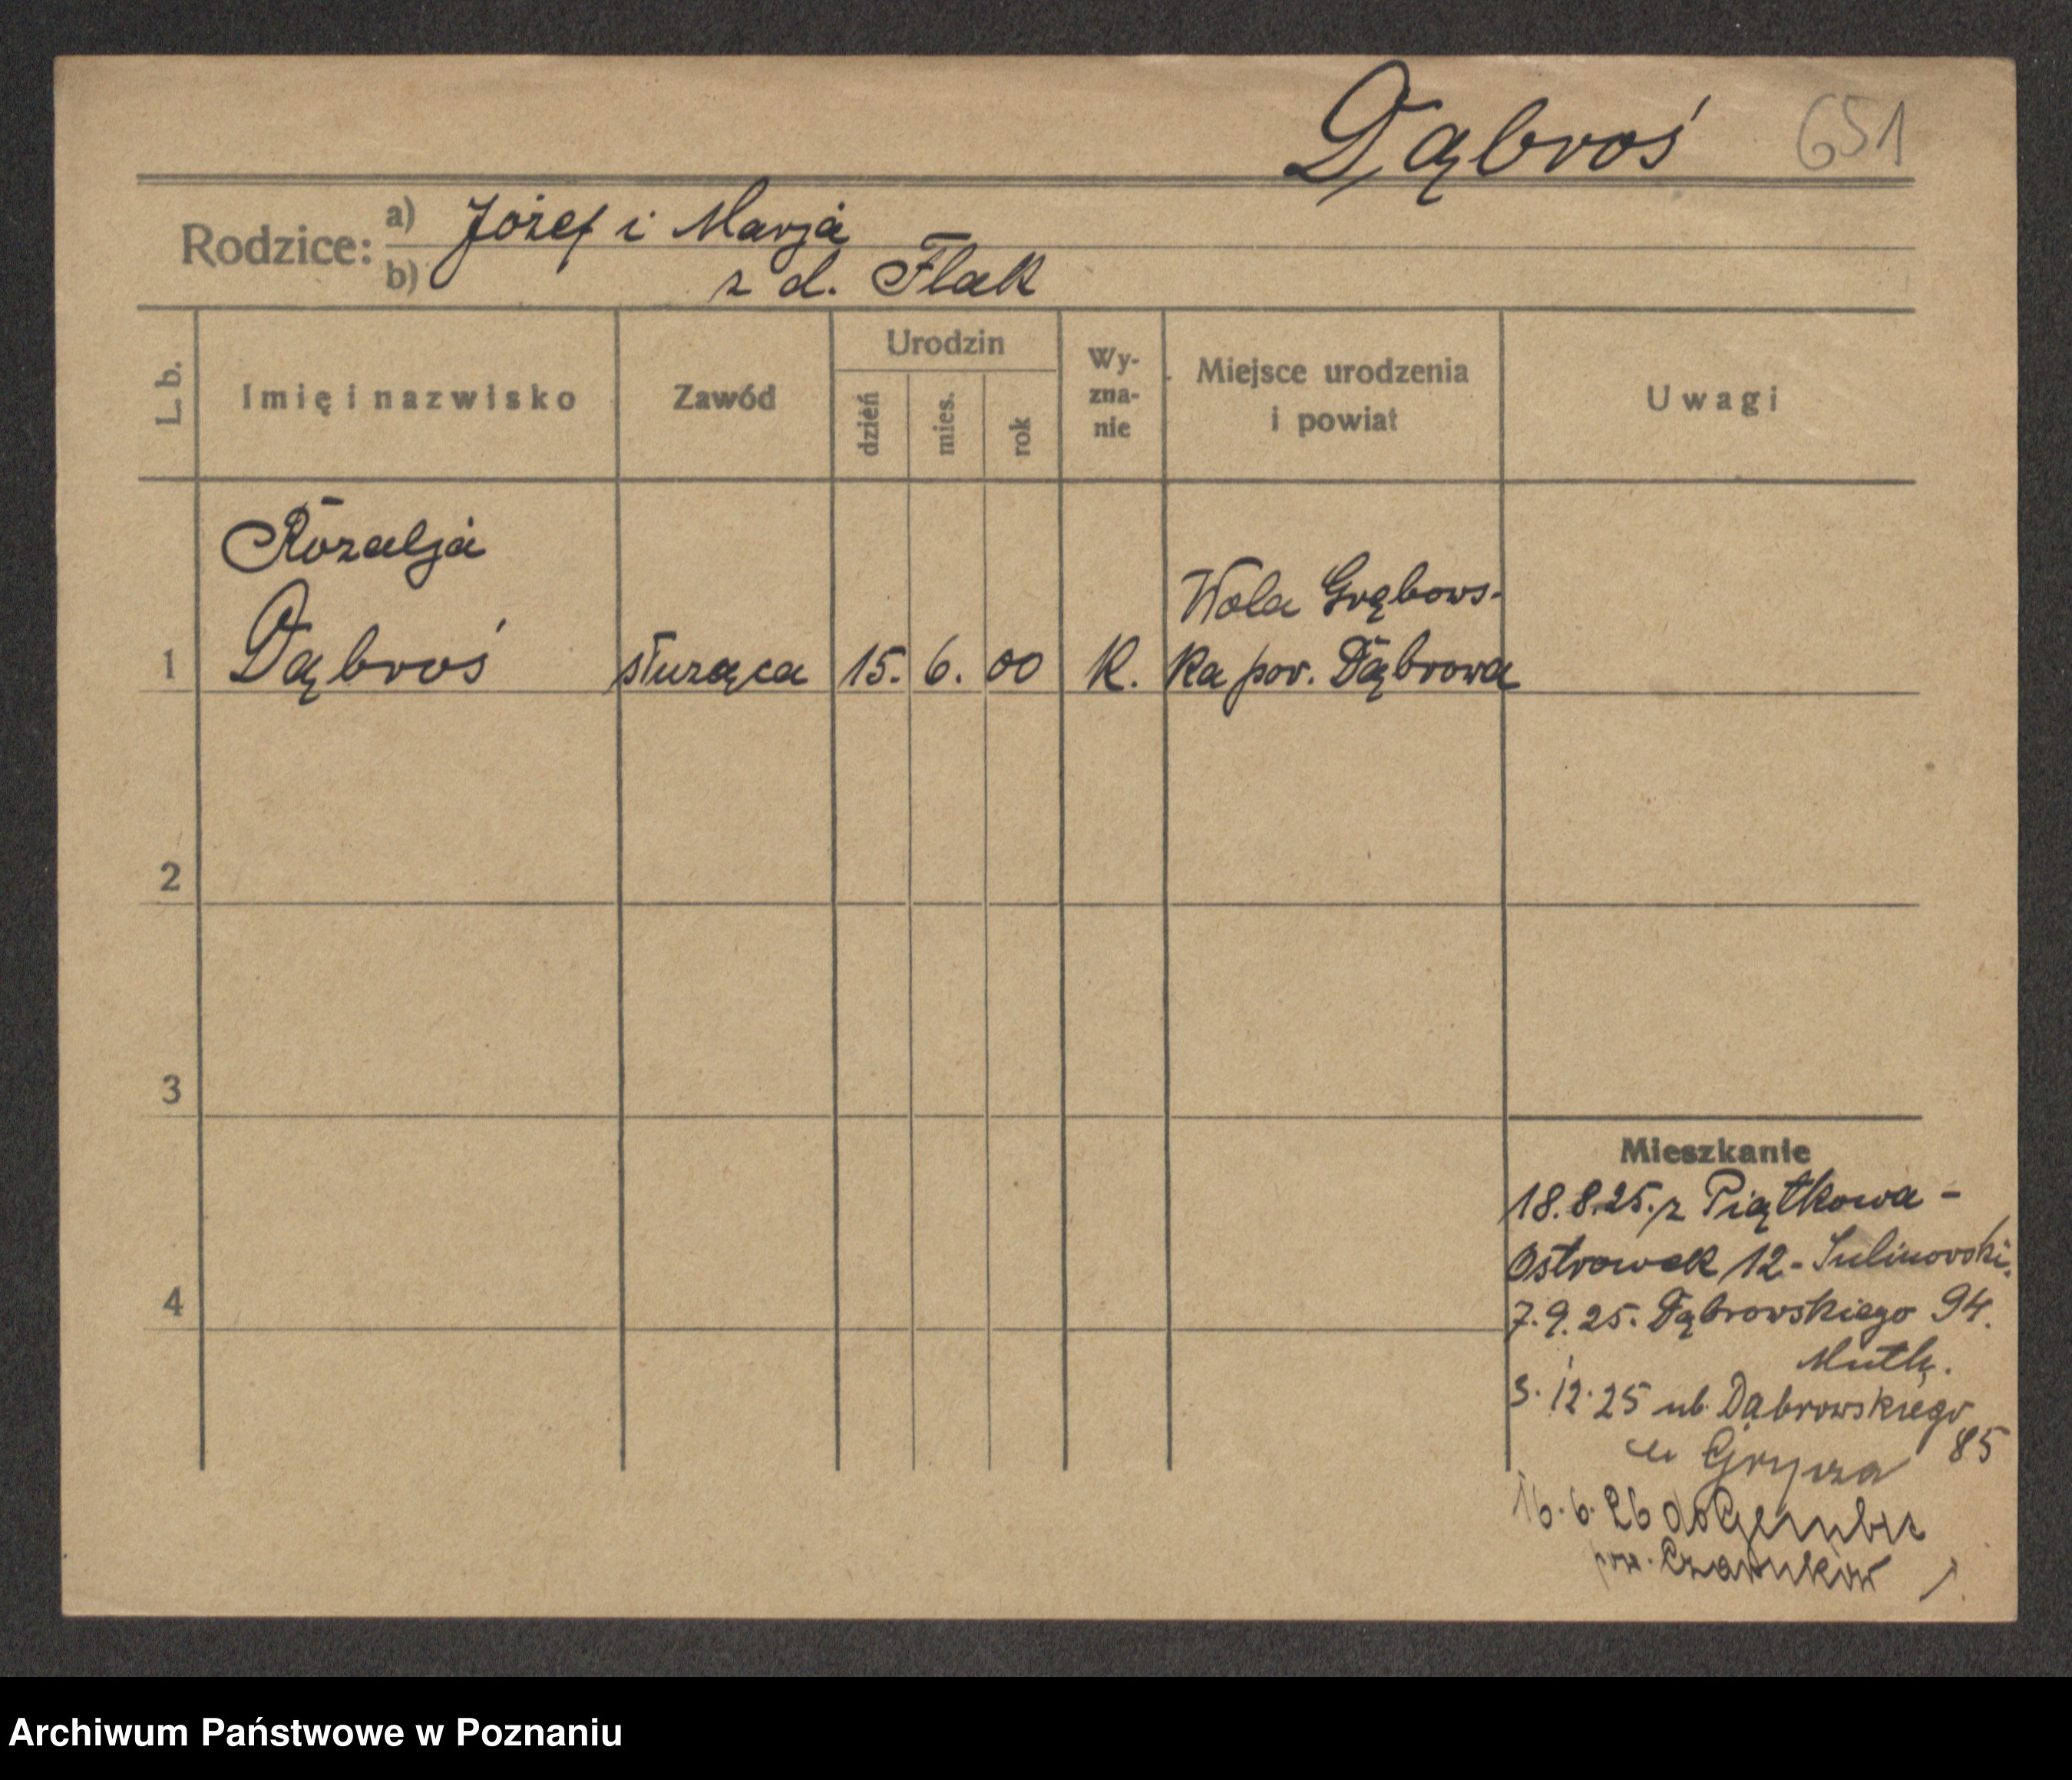 Dąbroś 651
Rodzice: a) Józef i Marja
b) z d. Flak
L. b. Imię i nazwisko Zawód Urodzin dzień mies. rok Wy-zna-nie Miejsce urodzenia i powiat Uwagi
Rozalja
Wola Grąbows-
1 Dąbroś służąca 15. 6. 00 K. ka pow. Dąbrowa
2
3
4
Mieszkanie
18.8.25. z Piątkowa -
Ostrowek 12 - Sulinowski.
7.9.25. Dąbrowskiego 94.
3.12.25 ul. Dąbrowskiego
u Grycza 85
16.6.26 do Gembic
pow. Czarnków
Archiwum Państwowe w Poznaniu